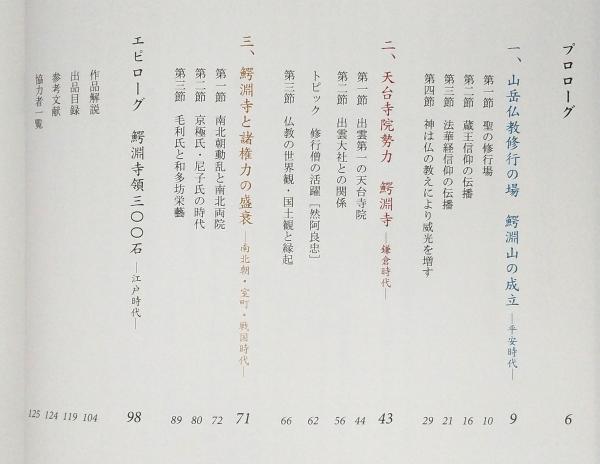 プロローグ 6
一、山岳仏教修行の場 鰐淵山の成立 ―平安時代― 9
第一節 聖の修行場 10
第二節 蔵王信仰の伝播 16
第三節 法華経信仰の伝播 21
第四節 神は仏の教えにより威光を増す 29
二、天台寺院勢力 鰐淵寺 ―鎌倉時代― 43
第一節 出雲第一の天台寺院 44
第二節 出雲大社との関係 56
トピック 修行僧の活躍［然阿良忠］ 62
第三節 仏教の世界観・国土観と縁起 66
三、鰐淵寺と諸権力の盛衰 ―南北朝・室町・戦国時代― 71
第一節 南北朝動乱と南北両院 72
第二節 京極氏・尼子氏の時代 80
第三節 毛利氏と和多坊栄藝 89
エピローグ 鰐淵寺領三〇〇石 ―江戸時代― 98
作品解説 104
出品目録 119
参考文献 124
協力者一覧 125